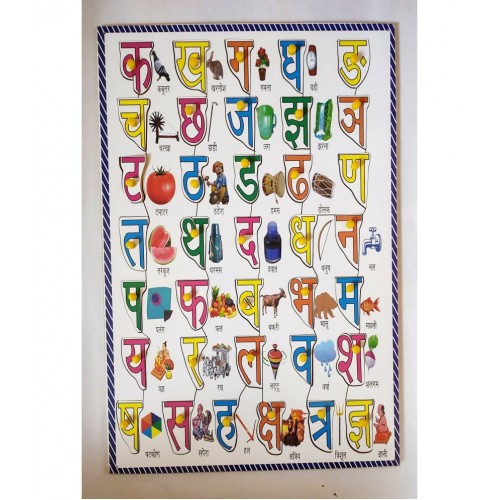 क ख ग घ ङ
कबूतर खरगोश गमला घडी
च छ ज झ ञ
चरखा छड़ी जग झरना
ट ठ ड ढ ण
टमाटर ठठेरा डमरू ढोलक
त थ द ध न
तरबूज थरमस दवात धनुष नल
प फ ब भ म
पतंग फल बकरी भालू मछली
य र ल व श
यज्ञ रथ लट्टू वर्षा शलगम
ष स ह क्ष त्र ज्ञ
षटकोण सपेरा हल क्षत्रिय त्रिशूल ज्ञानी